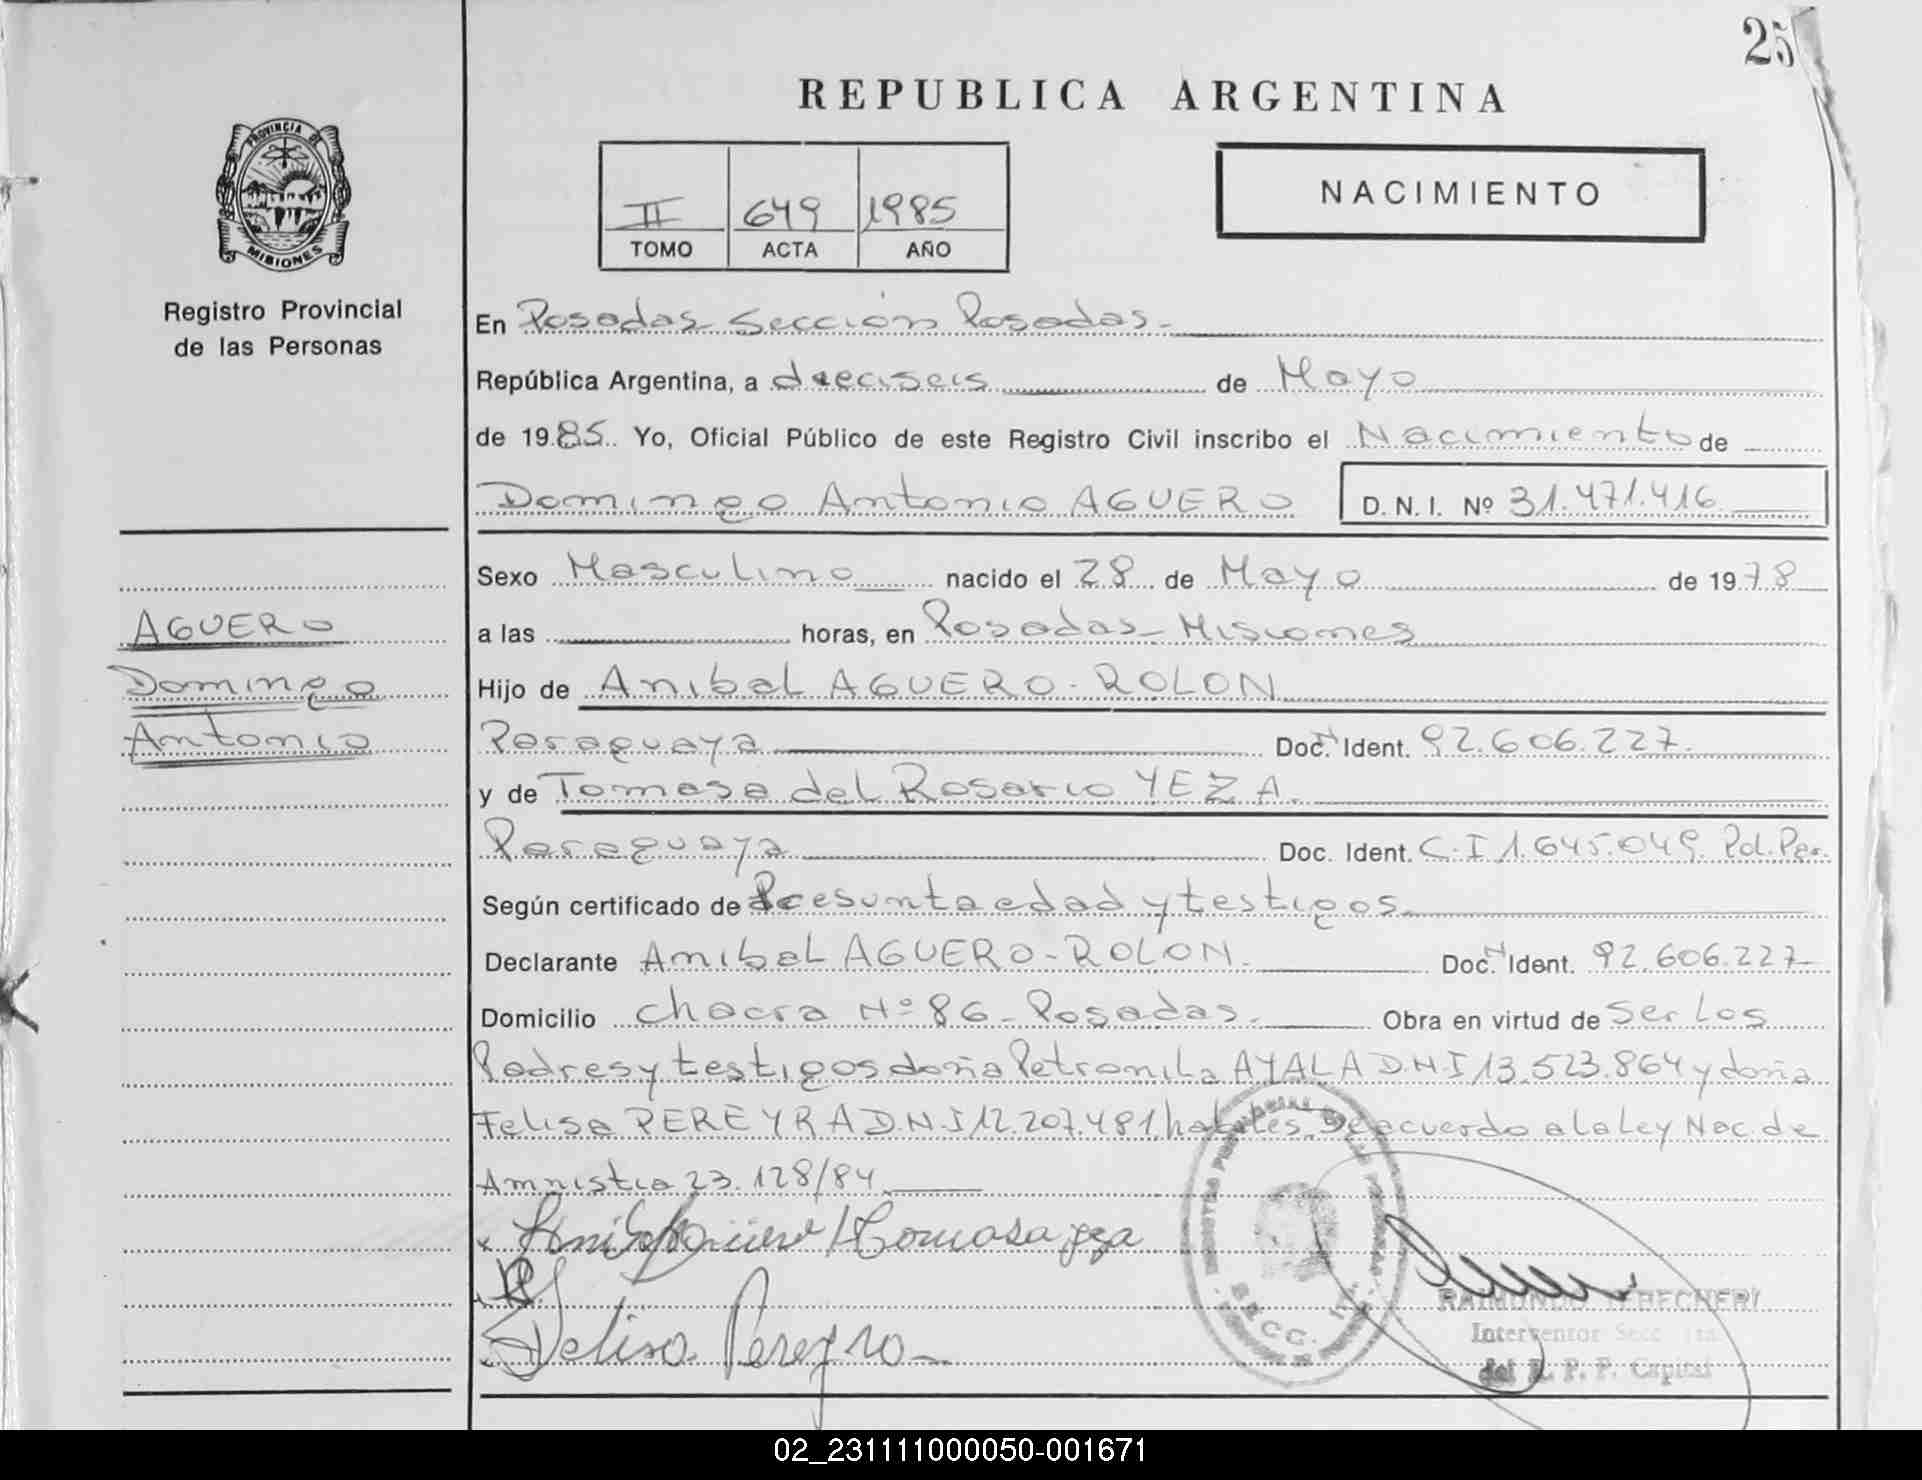 25
REPUBLICA ARGENTINA
PROVINCIA DE
MISIONES
Registro Provincial
de las Personas
II 649 1985
TOMO ACTA AÑO
NACIMIENTO
En Posadas Sección Posadas-
República Argentina, a dieciseis de Mayo
de 1985. Yo, Oficial Público de este Registro Civil inscribo el Nacimiento de
Domingo Antonio AGUERO D.N.I. Nº 31.471.416
Sexo Masculino nacido el 28 de Mayo de 1978
AGUERO
a las horas, en Posadas-Misiones
Domingo
Hijo de Anibal AGUERO-ROLON
Antonio
Paraguaya Doc. N Ident. 92.606.227.
y de Tomasa del Rosario YEZA.
Paraguaya Doc. Ident. C.I 1.645.049. Pol. Par.
Según certificado de Presunta edad y testigos
Declarante Anibal AGUERO-ROLON. Doc. N Ident. 92.606.227
Domicilio Chacra Nº 86-Posadas. Obra en virtud de Ser los
Padres y testigos doña Petronila AYALA D.N.I 13.523.864 y doña
Felisa PEREYRA D.N.I 12.207.481, habiles. De acuerdo a la Ley Nac. de
Amnistia 23.128/84
Tomasa
Felisa Pereyra
SECC.
RAIMUNDO
Interventor Secc. 1ra
del R. P. P. Capital
02_231111000050-001671